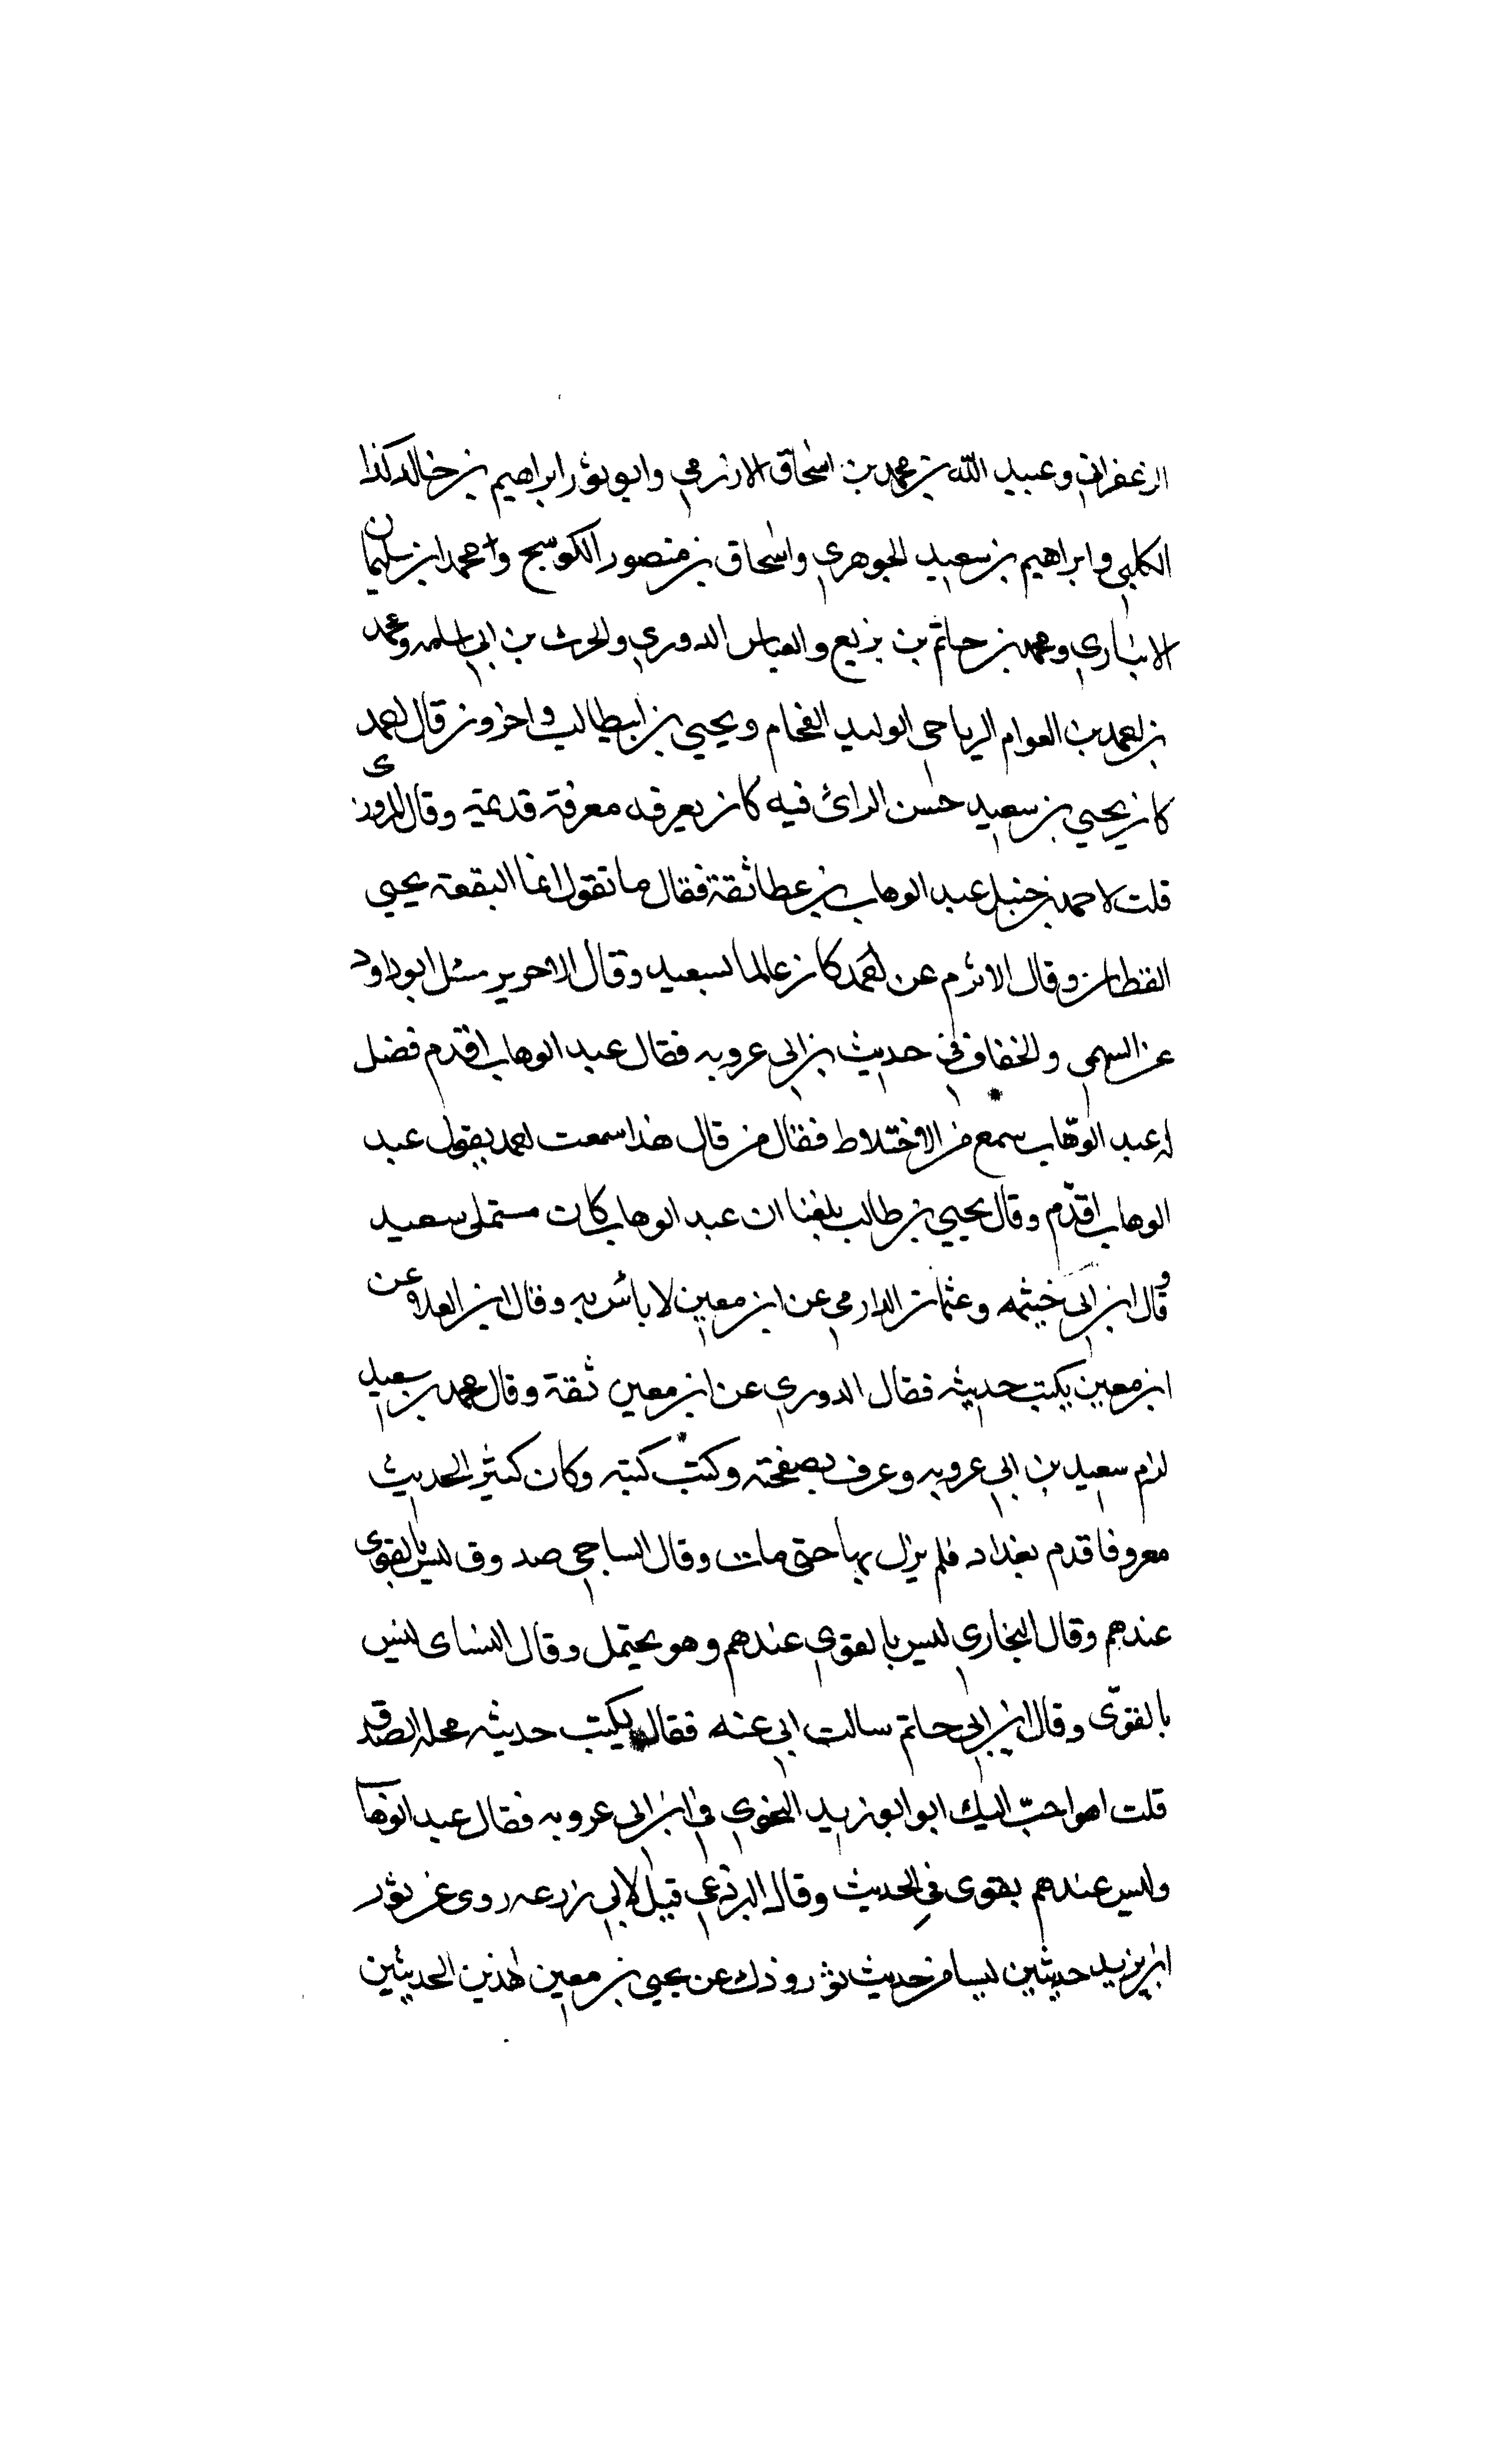 الزعفراني وعبيد الله بن محمد بن اسحاق الاذرمي وابو ثور ابراهيم بن خالد كذا
الكلبي وابراهيم بن سعيد الجوهري واسحاق بن منصور الكوسج و محمد ابن سليمان
الانباري ومحمد بن حاتم بن بزيع والعباس الدوري والحرث بن ابي اسلمه ومحمد
بن احمد بن العوام الرياحي الوليد الفحام ويحيى بن ابيطالب واخرون قال احمد
كان يحيى بن سعيد حسن الرائ فيه كان يعرفه معرفة قديمة وقال المروزى
قلت لاحمد بن حنبل عبد الوهاب بن عطا ثقة فقال ما تقول انما البقعة يحيى
القطان وقال الاثرم عن احمد كان عالما بسعيد وقال الاجرير سئل ابو داود
عن السهمي والخفاف في حديث بن ابي عروبه فقال عبد الوهاب اقدم فضل
له عبد الوهاب سمع من الاختلاط فقال من قال هذا سمعت احمد يقول عبد
الوهاب اقدم وقال يحيى بن طالب بلغنا ان عبد الوهاب كان مستملى سعيد
وقال ابن ابي خيثمه وعثمان الدارمي عن ابن معين لا بائس به وقال ابن العلا عن
ابن معين يكتب حديثه فقال الدوري عن ابن معين ثقة وقال محمد بن سعيد
لزم سعيد بن ابي عروبه وعرف بصحته وكتب كتبه وكان كثير الحديث
معروفا قدم بغداد فلم يزل بها حتى مات وقال الساجي صدوق ليس بالقوى
عندهم وقال البخاري ليس بالقوي عندهم وهو يحتمل وقال النساى ليس
بالقوّى وقال ابن ابي حاتم سالت ابي عنه فقال يكتب حديثه محله الصدق
قلت اهو احبّ اليك ابو ابو زيد النحوي في ابن ابي عروبه فقال عبد الوهاب
وليس عندهم بقوى في الحديث وقال البرذعي قيل لابي زرعه روى عن ثور
ابن يزيد حديثين ليسا من حديث ثور وذك عن يحيى بن معين هذين الحديثين